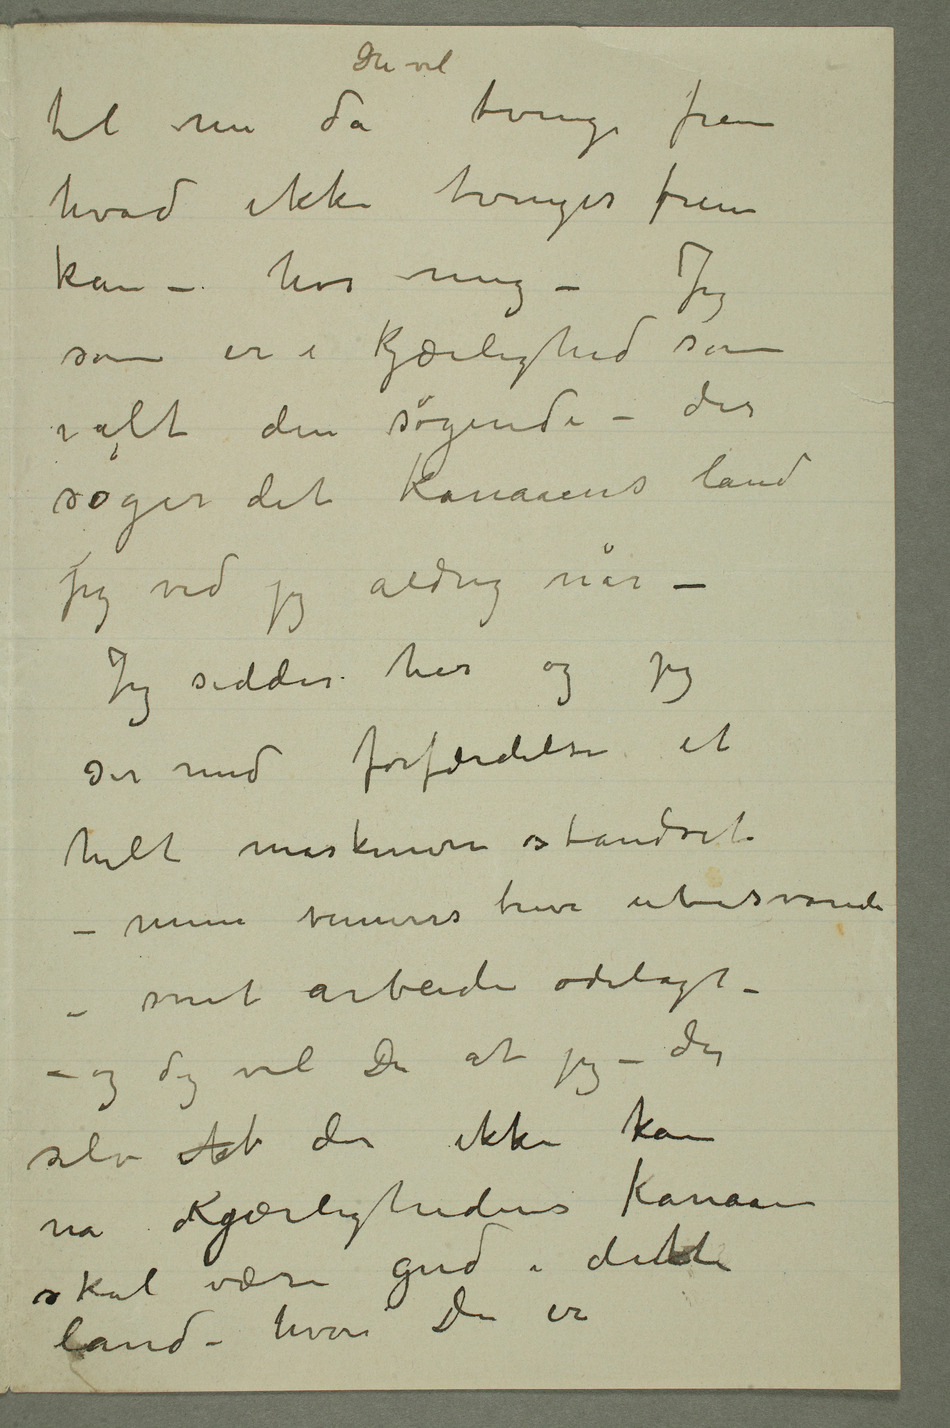 Du vil
til nu da tvinge frem
hvad ikke tvinges frem
kan – hos mig – Jeg
som er i Kjærlighed som
i alt den søgende – der
søger det Kanaaens land
jeg ved jeg aldrig når –
Jeg sidder her og jeg
ser med forfærdelse et
helt maskineri standset
– mine venners breve ubesvarede
– mit arbeide ødelagt –
– og dog vil Du at jeg – der
selv der ikke kan
nå Kjærlighedens Kanaan
skal være gud i dette
land – hvor Du er